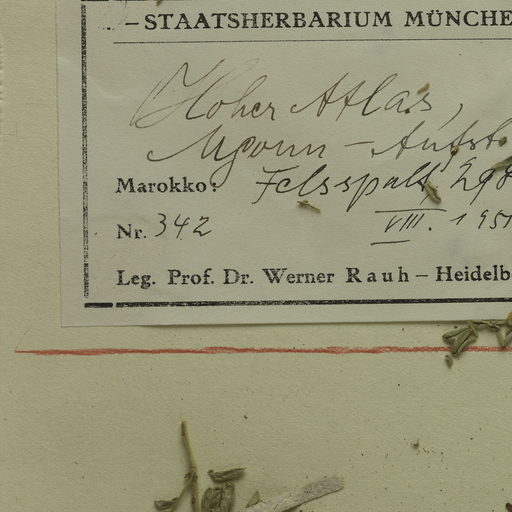 – STAATSHERBARIUM MÜNCHE
Hoher Atlas,
Mgoun – Aufst
Marokko: Felsspalt, 290
Nr. 342 VIII. 1951
Leg. Prof. Dr. Werner Rauh – Heidelb